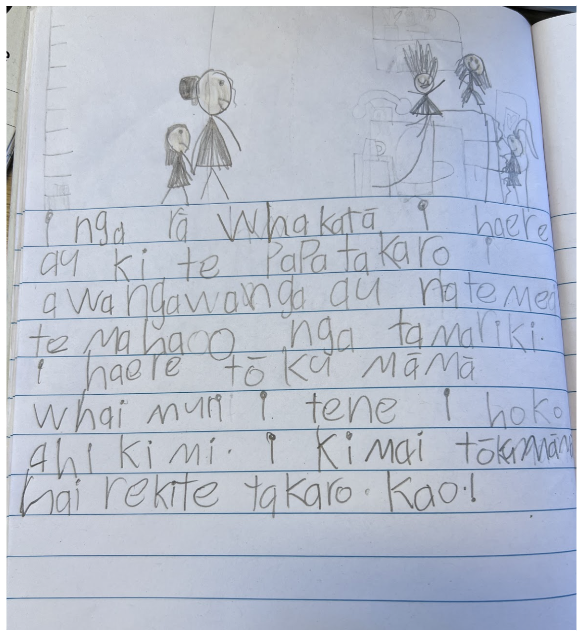 i nga rā whakatā i haere
au ki te papatakaro i
awangawanga au natemea
te mahaoo nga tamariki.
i haere tōku māmā
whai muri i tene i hoko
ahi kimi. i kimai tōkumāmā
hai rekite takaro. kao!